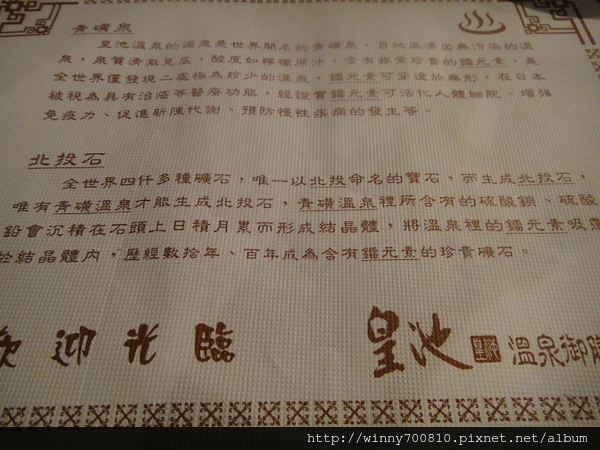 青磺泉
皇池溫泉的源泉是世界聞名的青磺泉，自地底湧出無污染的溫
泉，泉質清澈見底，酸度如檸檬原汁，含有非常珍貴的鐳元素，是
全世界僅發現二處極為珍少的溫泉，鐳元素可穿透於無形，在日本
被視為具有治癌等醫療功能，經證實鐳元素可活化人體細胞、增強
免疫力、促進新陳代謝、預防慢性疾病的發生等。
北投石
全世界四仟多種礦石，唯一以北投命名的寶石，而生成北投石，
唯有青磺溫泉才能生成北投石，青磺溫泉裡所含有的硫酸鋇、硫酸
鉛會沉積在石頭上日積月累而形成結晶體，將溫泉裡的鐳元素吸
於結晶體內，歷經數拾年、百年成為含有鐳元素的珍貴礦石。
歡迎光臨
皇池 皇池 溫泉御膳
http://winny700810.pixnet.net/album